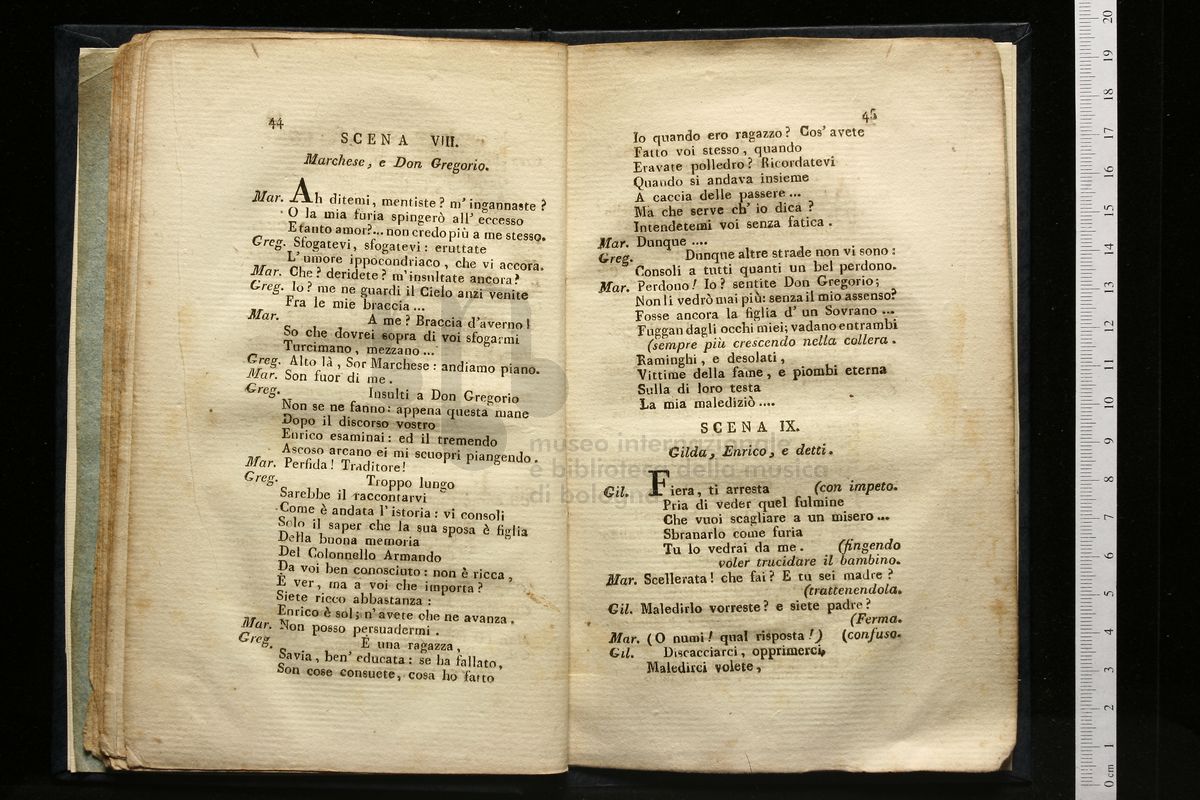 44
SCENA VIII.
Marchese, e Don Gregorio.
Mar. Ah ditemi, mentiste? m' ingannaste?
O la mia furia spingerò all' eccesso
E tanto amor?... non credo più a me stesso.
Greg. Sfogatevi, sfogatevi: eruttate
L' umore ippocondriaco, che vi accora.
Mar. Che? deridete? m' insultate ancora?
Greg. Io? me ne guardi il Cielo anzi venite
Fra le mie braccia...
Mar. A me? Braccia d'averno!
So che dovrei sopra di voi sfogarmi
Turcimano, mezzano...
Greg. Alto là, Sor Marchese: andiamo piano.
Mar. Son fuor di me.
Greg. Insulti a Don Gregorio
Non se ne fanno: appena questa mane
Dopo il discorso vostro
Enrico esaminai: ed il tremendo
Ascoso arcano ei mi scuoprì piangendo.
Mar. Perfida! Traditore!
Greg. Troppo lungo
Sarebbe il raccontarvi
Come è andata l' istoria: vi consoli
Solo il saper che la sua sposa è figlia
Della buona memoria
Del Colonnello Armando
Da voi ben conosciuto: non è ricca,
È ver, ma a voi che importa?
Siete ricco abbastanza:
Enrico è sol; n' avete che ne avanza.
Mar. Non posso persuadermi.
Greg. È una ragazza,
Savia, ben' educata: se ha fallato,
Son cose consuete, cosa ho fatto
45
Io quando ero ragazzo? Cos' avete
Fatto voi stesso, quando
Eravate polledro? Ricordatevi
Quando si andava insieme
A caccia delle passere...
Ma che serve ch' io dica?
Intendetemi voi senza fatica.
Mar. Dunque....
Greg. Dunque altre strade non vi sono:
Consoli a tutti quanti un bel perdono.
Mar. Perdono! Io? sentite Don Gregorio;
Non li vedrò mai più: senza il mio assenso?
Fosse ancora la figlia d' un Sovrano...
Fuggan dagli occhi miei; vadano entrambi
(sempre più crescendo nella collera.
Raminghi, e desolati,
Vittime della fame, e piombi eterna
Sulla di loro testa
La mia malediziò....
SCENA IX.
Gilda, Enrico, e detti.
Gil. Fiera, ti arresta (con impeto.
Pria di veder quel fulmine
Che vuoi scagliare a un misero...
Sbranarlo come furia
Tu lo vedrai da me. (fingendo
voler trucidare il bambino.
Mar. Scellerata! che fai? E tu sei madre?
(trattenendola.
Gil. Maledirlo vorreste? e siete padre?
(Ferma.
Mar. (O numi! qual risposta!) (confuso.
Gil. Discacciarci, opprimerci,
Maledirci volete,
museo internazionale
e biblioteca della musica
di bologna
0 cm 1 2 3 4 5 6 7 8 9 10 11 12 13 14 15 16 17 18 19 20